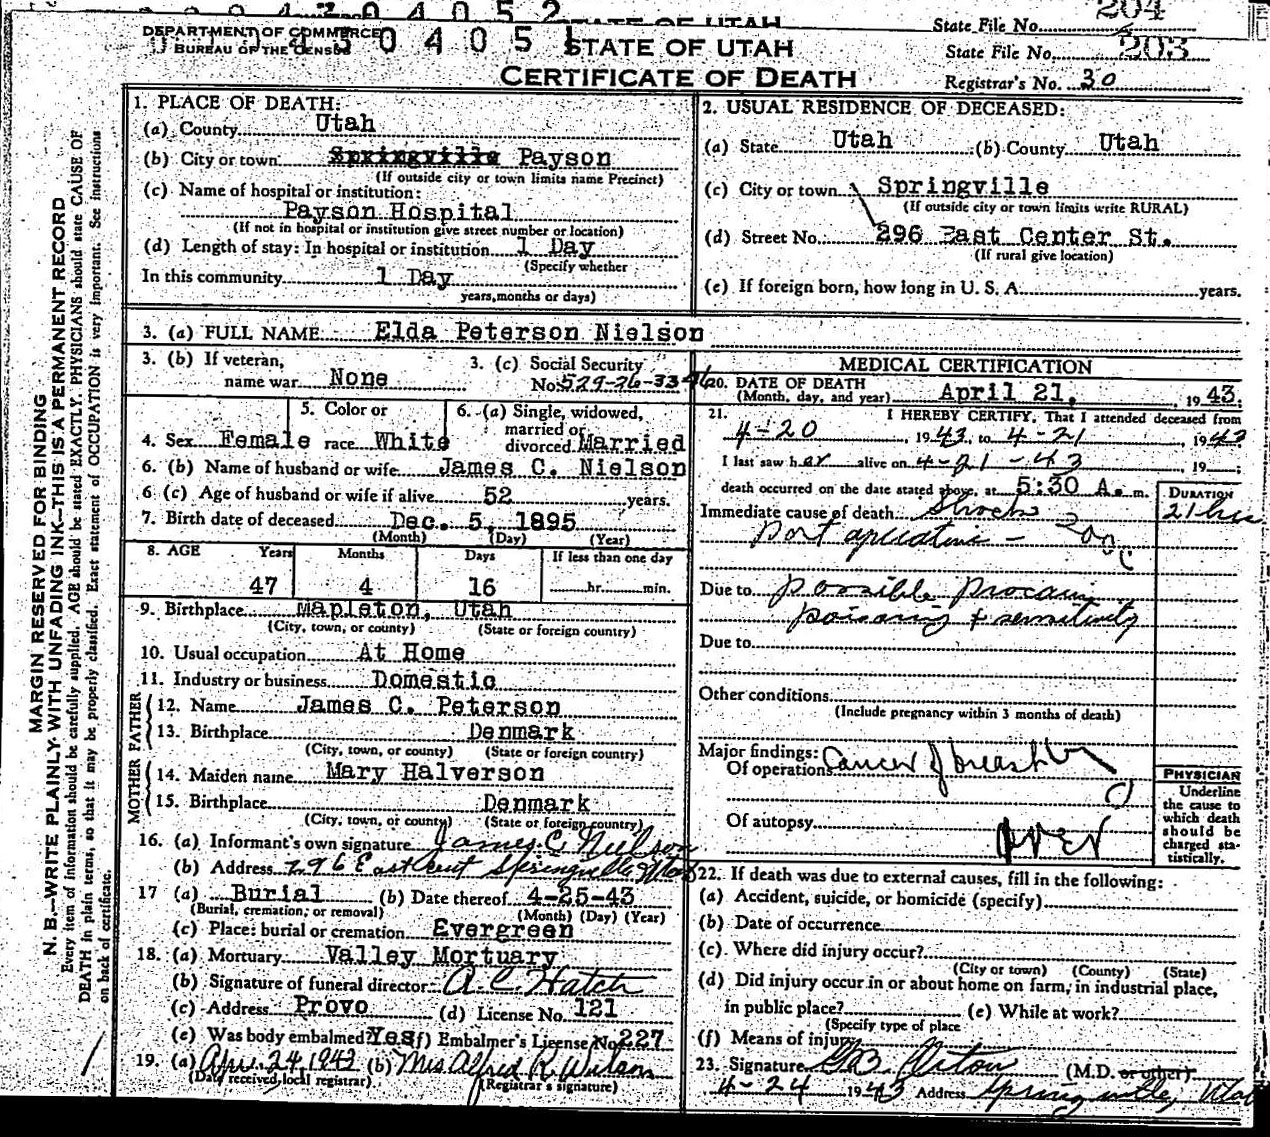 STATE OF UTAH
State File No. 204
DEPARTMENT OF COMMERCE
BUREAU OF THE CENSUS
STATE OF UTAH
State File No. 203
CERTIFICATE OF DEATH
Registrar's No. 30
MARGIN RESERVED FOR BINDING
N. B.—WRITE PLAINLY WITH UNFADING INK—THIS IS A PERMANENT RECORD
Every item of information should be carefully supplied. AGE should be stated EXACTLY. PHYSICIANS should state CAUSE OF
DEATH in plain terms, so that it may be properly classified. Exact statement of OCCUPATION is very important. See instructions
on back of certificate.
1. PLACE OF DEATH:
(a) County Utah
(b) City or town Springville Payson
(If outside city or town limits name Precinct)
(c) Name of hospital or institution:
Payson Hospital
(If not in hospital or institution give street number or location)
(d) Length of stay: In hospital or institution 1 Day
(Specify whether
In this community 1 Day
years, months or days)
2. USUAL RESIDENCE OF DECEASED:
(a) State Utah (b) County Utah
(c) City or town Springville
(If outside city or town limits write RURAL)
(d) Street No. 296 East Center St.
(If rural give location)
(e) If foreign born, how long in U. S. A. years.
3. (a) FULL NAME Elda Peterson Nielson
3. (b) If veteran,
name war None
3. (c) Social Security
No. 529-26-3346
4. Sex Female
5. Color or
race White
6. (a) Single, widowed,
married or
divorced Married
6. (b) Name of husband or wife James C. Nielson
6 (c) Age of husband or wife if alive 52 years.
7. Birth date of deceased Dec. 5, 1895
(Month) (Day) (Year)
8. AGE Years Months Days If less than one day
47 4 16 hr. min.
9. Birthplace Mapleton, Utah
(City, town, or county) (State or foreign country)
10. Usual occupation At Home
11. Industry or business Domestic
FATHER
12. Name James C. Peterson
13. Birthplace Denmark
(City, town, or county) (State or foreign country)
MOTHER
14. Maiden name Mary Halverson
15. Birthplace Denmark
(City, town, or county) (State or foreign country)
16. (a) Informant's own signature James C Nielson
(b) Address 296 East Cent Springville Utah
17 (a) Burial (b) Date thereof 4-25-43
(Burial, cremation, or removal) (Month) (Day) (Year)
(c) Place: burial or cremation Evergreen
18. (a) Mortuary Valley Mortuary
(b) Signature of funeral director A. C Hatch
(c) Address Provo (d) License No. 121
(e) Was body embalmed? Yes (f) Embalmer's License No. 227
19. (a) Apr. 24 1943 (b) Mrs Alfred R. Wilson
(Date received, local registrar) (Registrar's signature)
MEDICAL CERTIFICATION
20. DATE OF DEATH
(Month, day, and year) April 21, 1943.
21. I HEREBY CERTIFY, That I attended deceased from
4-20 1943, to 4-21 1943
I last saw her alive on 4-21-43 19 ;
death occurred on the date stated above, at 5:30 A. m.
DURATION
Immediate cause of death Shock 21 hrs
post operative -
Due to possible procain
poisoning & sensitivity
Due to
Other conditions
(Include pregnancy within 3 months of death)
Major findings:
Of operations Cancer of breast
Of autopsy
OVER
PHYSICIAN
Underline
the cause to
which death
should be
charged sta-
tistically.
22. If death was due to external causes, fill in the following:
(a) Accident, suicide, or homicide (specify)
(b) Date of occurrence
(c) Where did injury occur?
(City or town) (County) (State)
(d) Did injury occur in or about home on farm, in industrial place,
in public place? (e) While at work?
(Specify type of place
(f) Means of injury
23. Signature G.B. Orton (M.D. or other)
4-24 1943 Address Springville, Utah